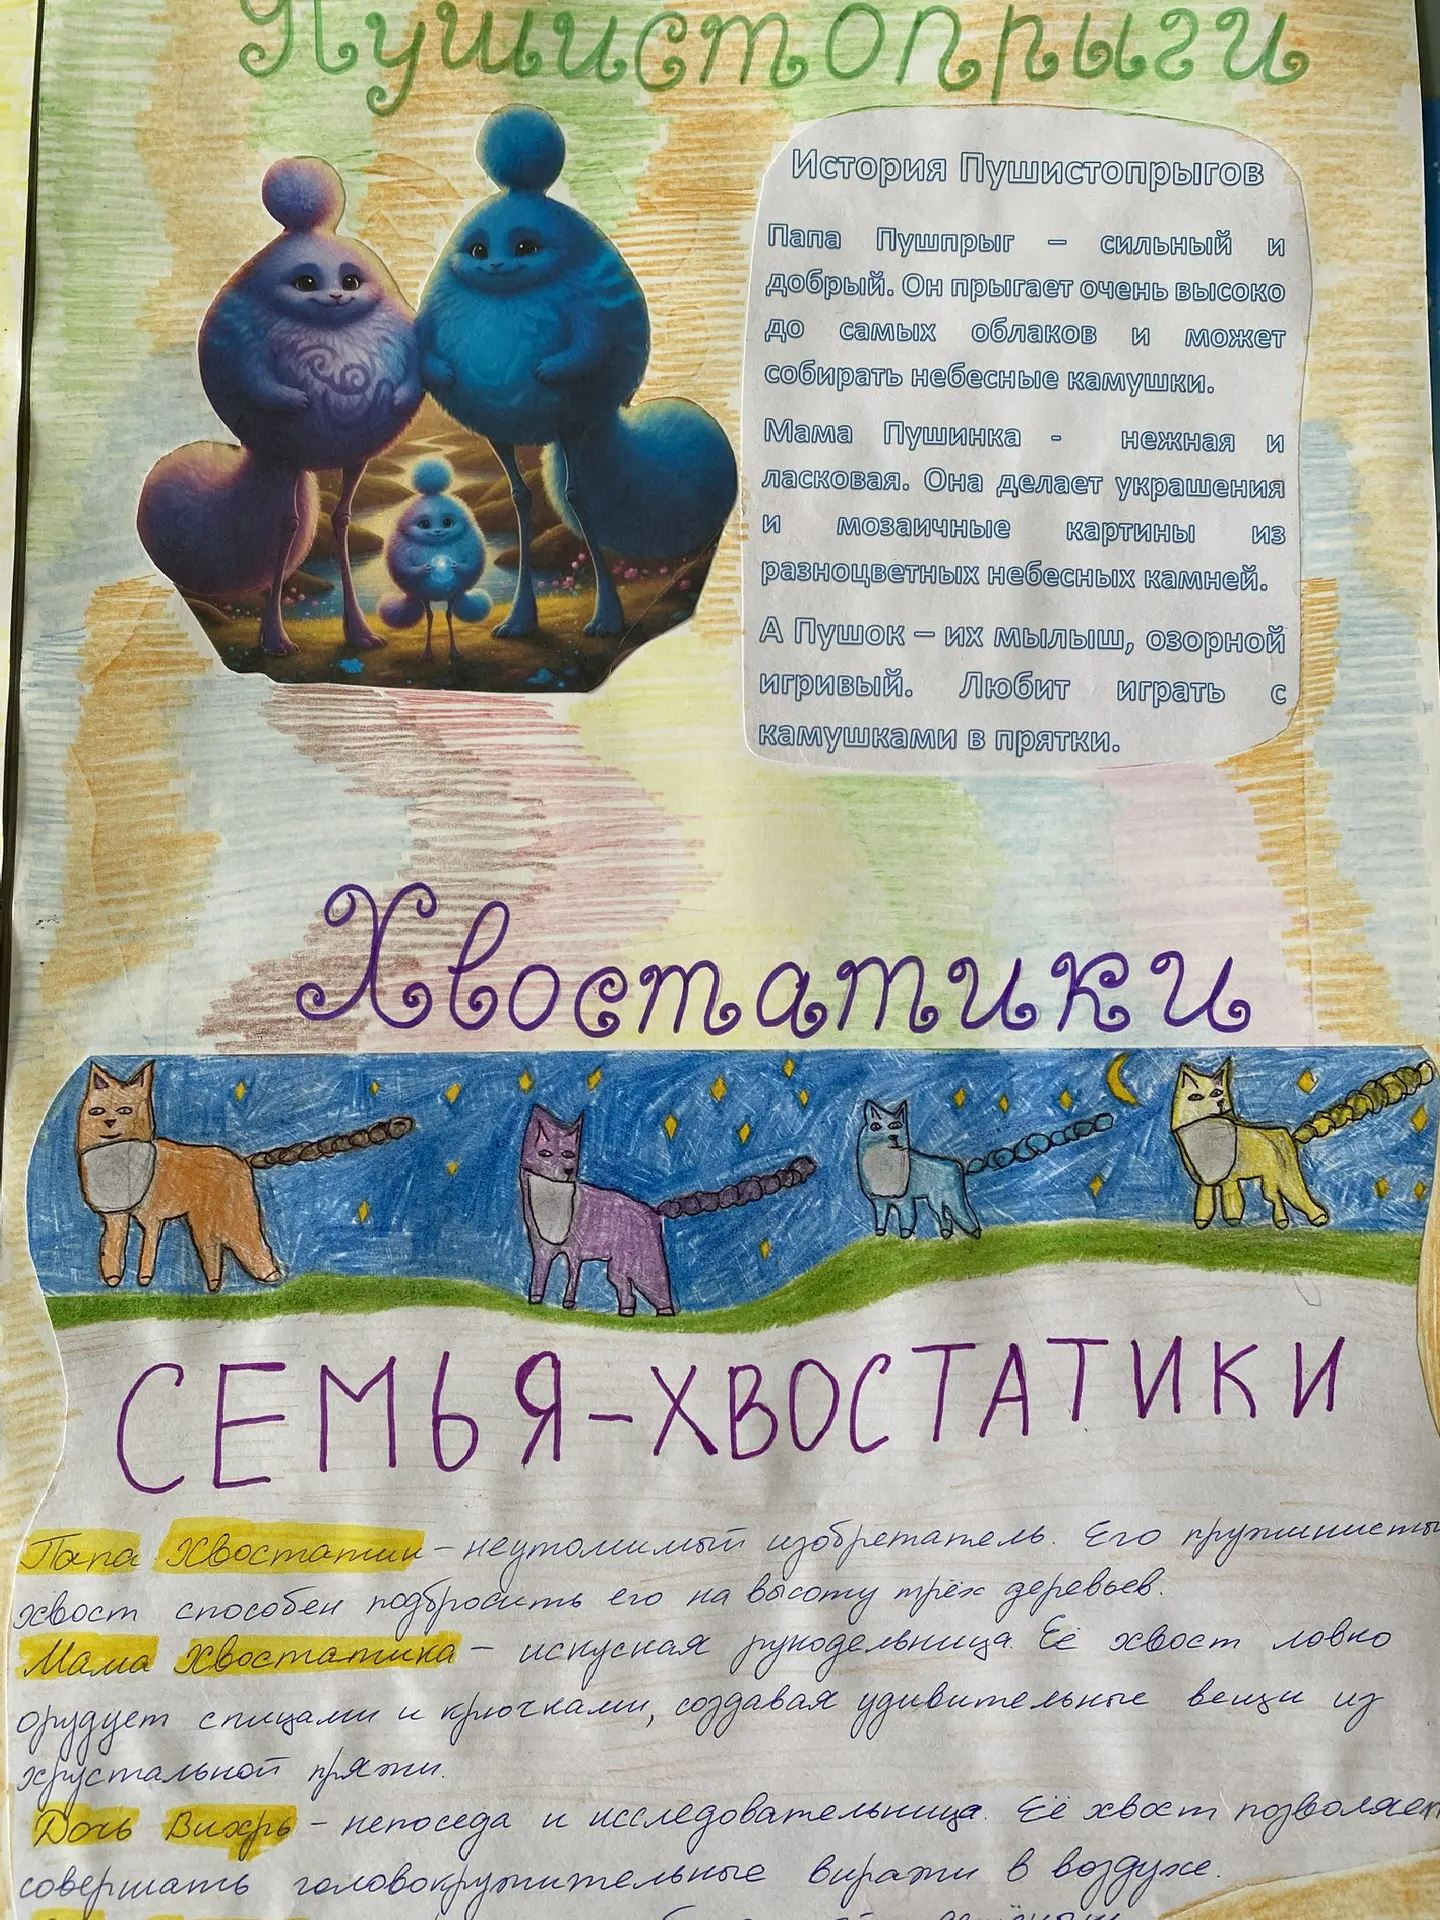 Пушистопрыги
История Пушистопрыгов
Папа Пушпрыг – сильный и
добрый. Он прыгает очень высоко
до самых облаков и может
собирать небесные камушки.
Мама Пушинка - нежная и
ласковая. Она делает украшения
и мозаичные картины из
разноцветных небесных камней.
А Пушок – их мылыш, озорной
игривый. Любит играть с
камушками в прятки.
Хвостатики
СЕМЬЯ-ХВОСТАТИКИ
Папа Хвостатик – неутомимый изобретатель. Его пружинисты
хвост способен подбросить его на высоту трёх деревьев.
Мама Хвостатика – искусная рукодельница. Её хвост ловко
орудует спицами и крючками, создавая удивительные вещи из
хрустальной пряжи.
Дочь Вихрь – непоседа и исследовательница. Её хвост позволяет
совершать головокружительные виражи в воздухе.